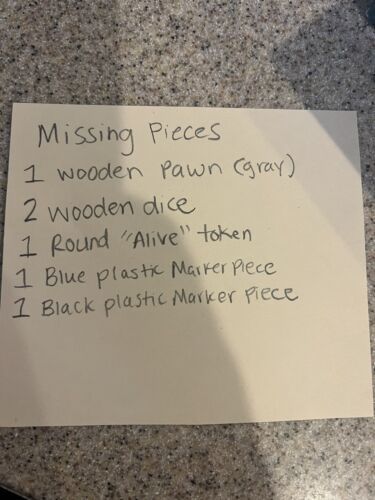 Missing Pieces
1 wooden pawn (gray)
2 wooden dice
1 Round "Alive" token
1 Blue plastic Marker Piece
1 Black plastic Marker Piece